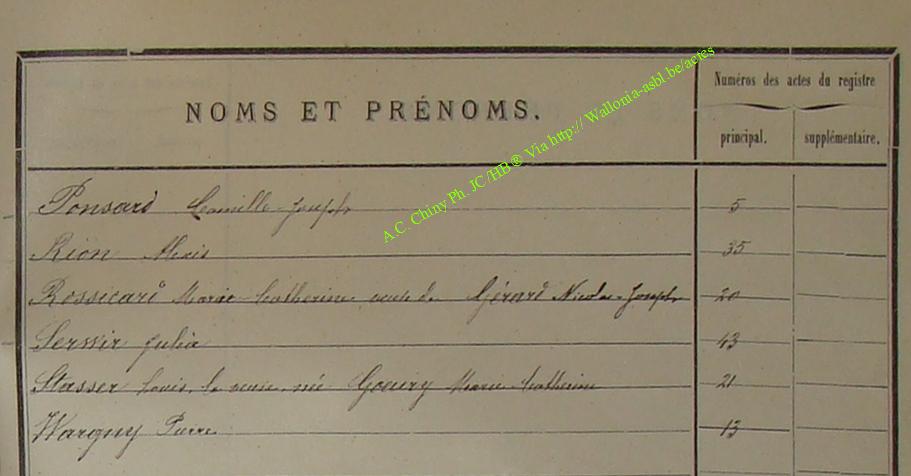 NOMS ET PRÉNOMS.
Numéros des actes du registre
principal. supplémentaire.
A.C. Chiny Ph. JC/HB ® Via http:// Wallonia-asbl.be/actes
Ponsard Camille-Joseph 5
Rion Alexis 35
Rossicard Marie-Catherine veuve de Gérard Nicolas-Joseph 20
Servir Julia 43
Stasser Louis, la veuve, née Goeury Marie-Catherine 21
Wargny Pierre 13